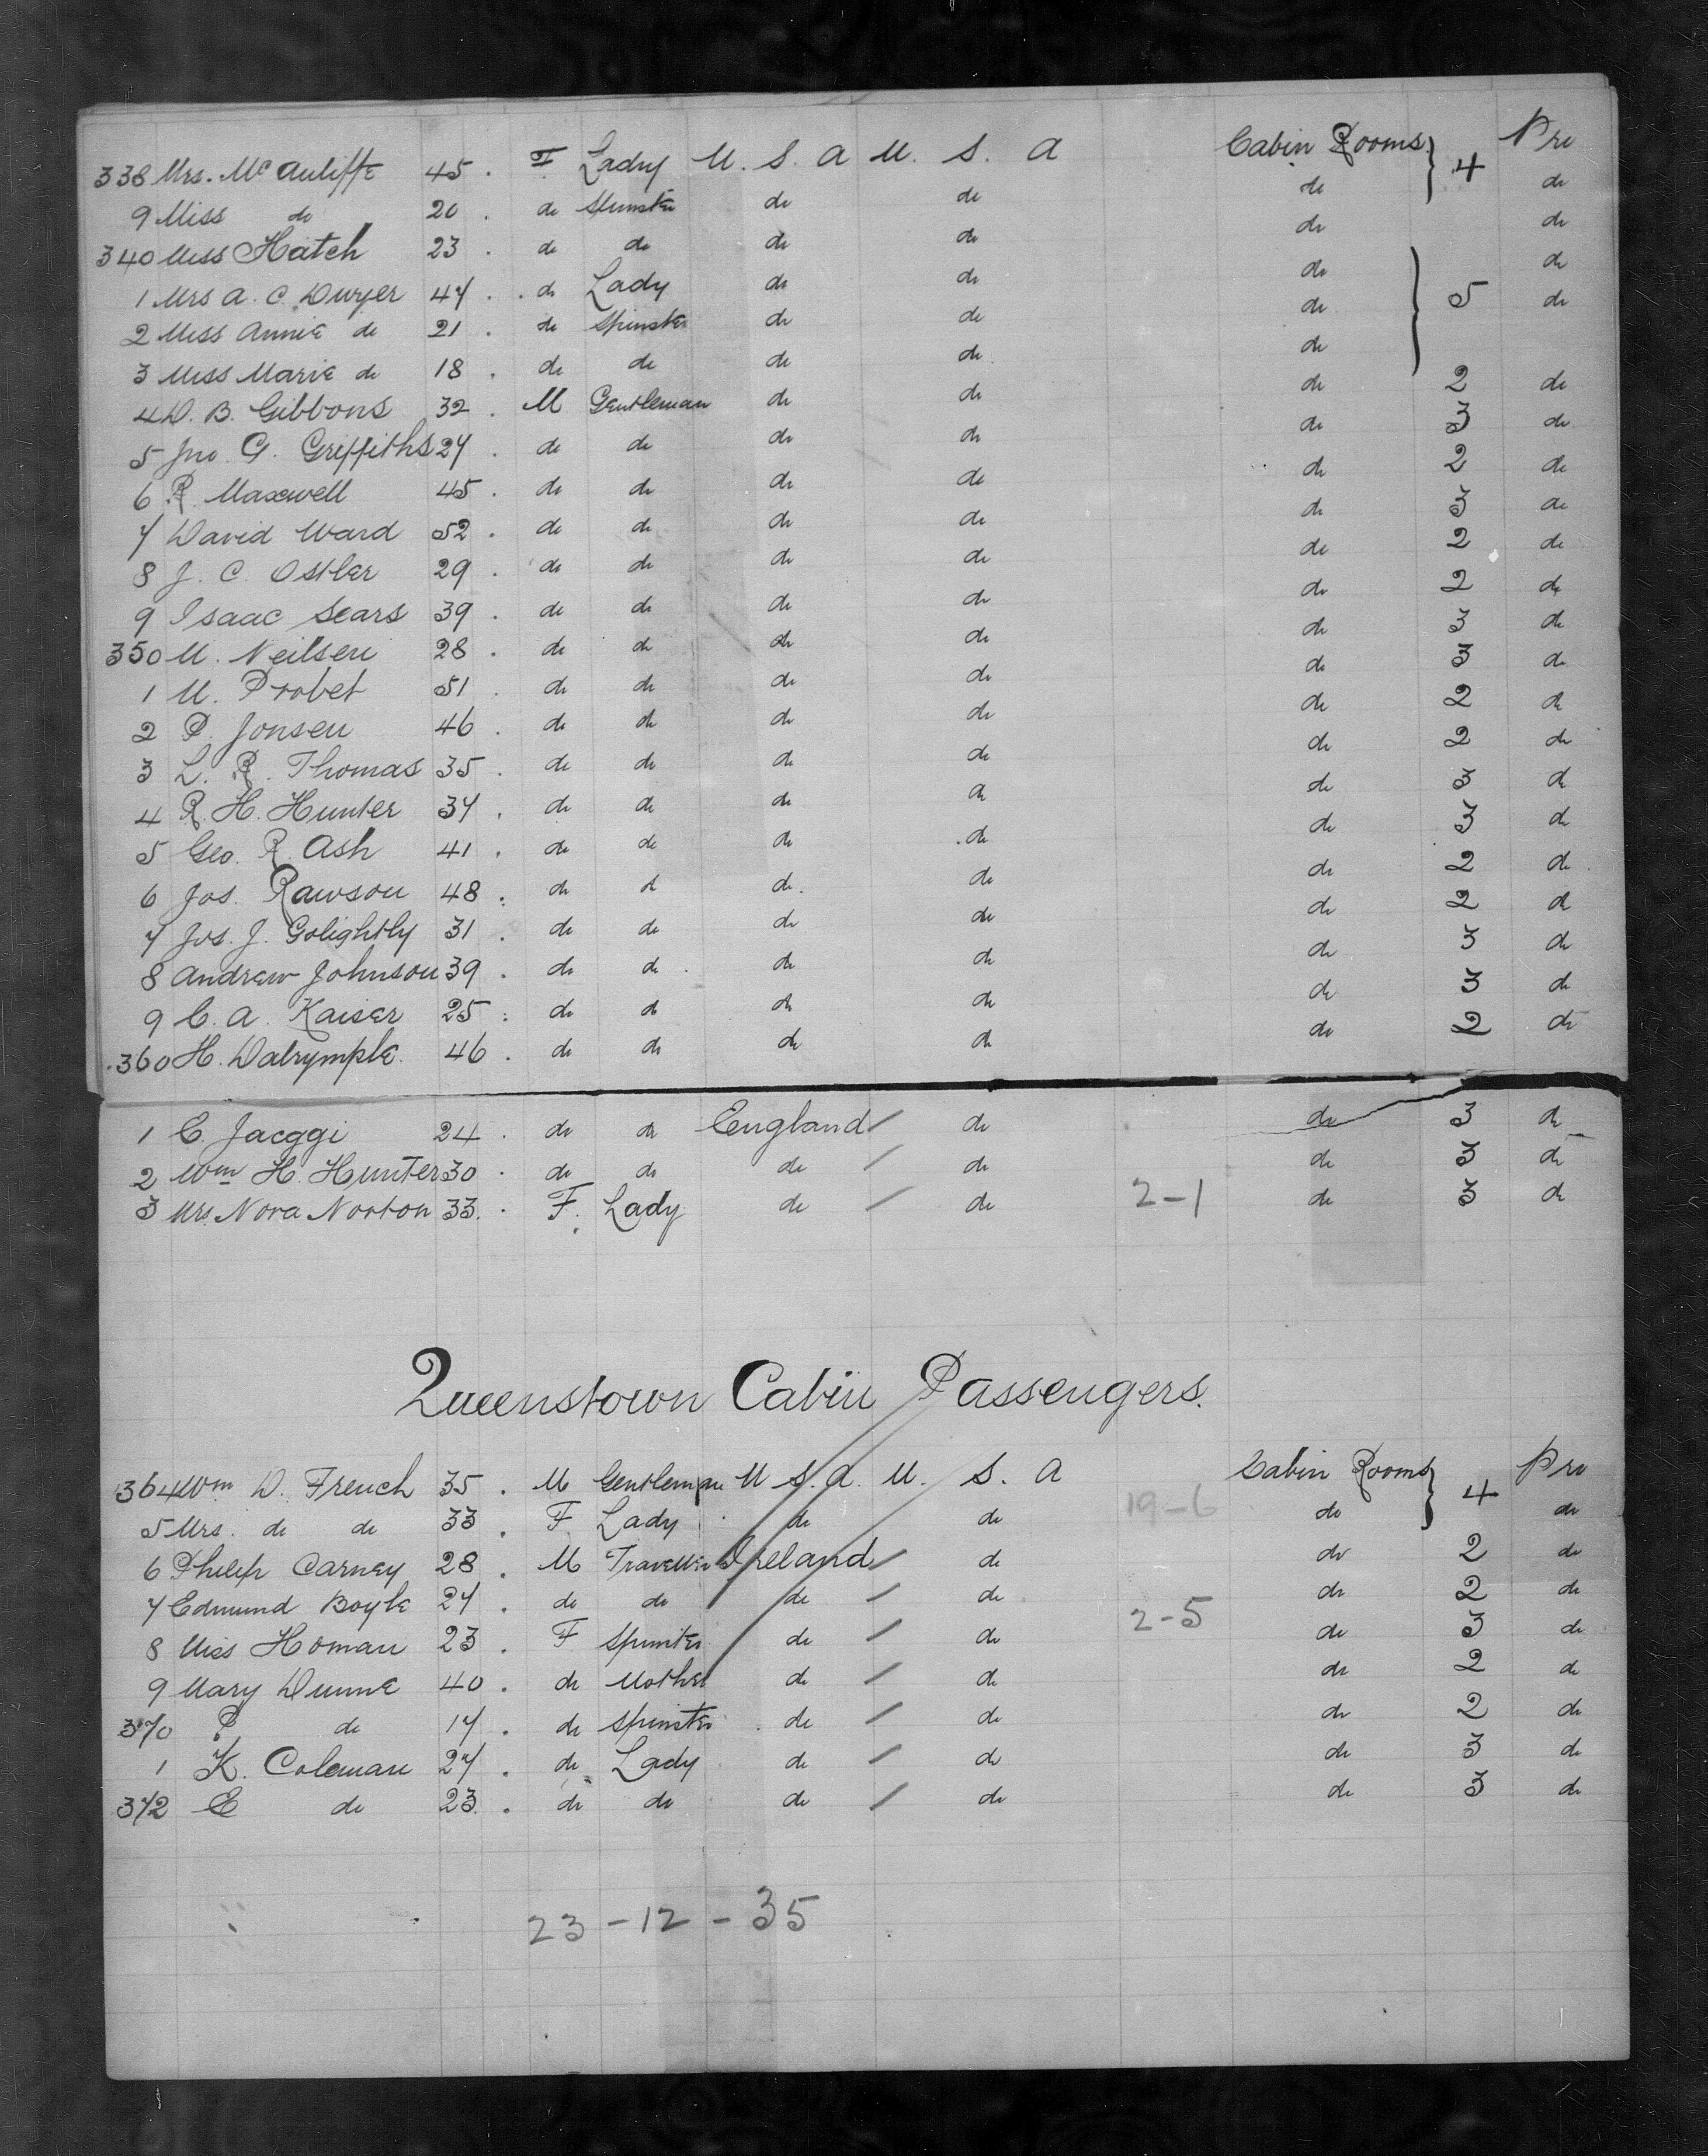 338 Mrs. Mc Auliffe 45 . F. Lady U. S. A U. S. A Cabin Rooms } 4 Pro
9 Miss do 20 . do Spinster do do do do
340 Miss Hatch 23 . do do do do do do
1 Mrs A. C. Dwyer 47 . do Lady do do do } 5 do
2 Miss Annie do 21 . do Spinster do do do do
3 Miss Marie do 18 . do do do do do
4 D. B. Gibbons 32 . M Gentleman do do do 2 do
5 Jno G. Griffiths 27 . do do do do do 3 do
6 R. Maxwell 45 . do do do do do 2 do
7 David Ward 52 . do do do do do 3 do
8 J. C. Ostler 29 . do do do do do 2 do
9 Isaac Sears 39 . do do do do do 2 do
350 M. Neilsen 28 . do do do do do 3 do
1 M. Probet 51 . do do do do do 3 do
2 P. Jonsen 46 . do do do do do 2 do
3 L. R. Thomas 35 . do do do do do 2 do
4 R. H. Hunter 37 . do do do do do 3 do
5 Geo. R. Ash 41 . do do do do do 3 do
6 Jos. Rawson 48 . do do do do do 2 do
7 Jos. J. Golightly 31 . do do do do do 2 do
8 Andrew Johnson 39 . do do do do do 3 do
9 C. A. Kaiser 25 . do do do do do 3 do
360 H. Dalrymple. 46 . do do do do do 2 do
1 C. Jacggi 24 . do do England / do do 3 do
2 Wm H. Hunter 30 . do do do / do do 3 do
3 Mrs. Nora Norton 33. . F. Lady do / do 2-1 do 3 do
Queenstown Cabin Passengers.
364 Wm D. French 35 . M Gentleman U S. A. U. S. A Cabin Rooms } 4 Pro
5 Mrs. do do 33 . F. Lady do do 19-6 do do
6 Philip Carney 28 . M Traveller Ireland / do do 2 do
7 Edmund Boyle 27 . do do do / do do 2 do
8 Miss Homan 23 . F Spinster do / do 2-5 do 3 do
9 Mary Dunne 40 . do Mother do / do do 2 do
370 P. do 17 . do Spinster do / do do 2 do
1 K. Coleman 27 . do Lady do / do do 3 do
372 E do 23 . do do do / do do 3 do
23 - 12 - 35